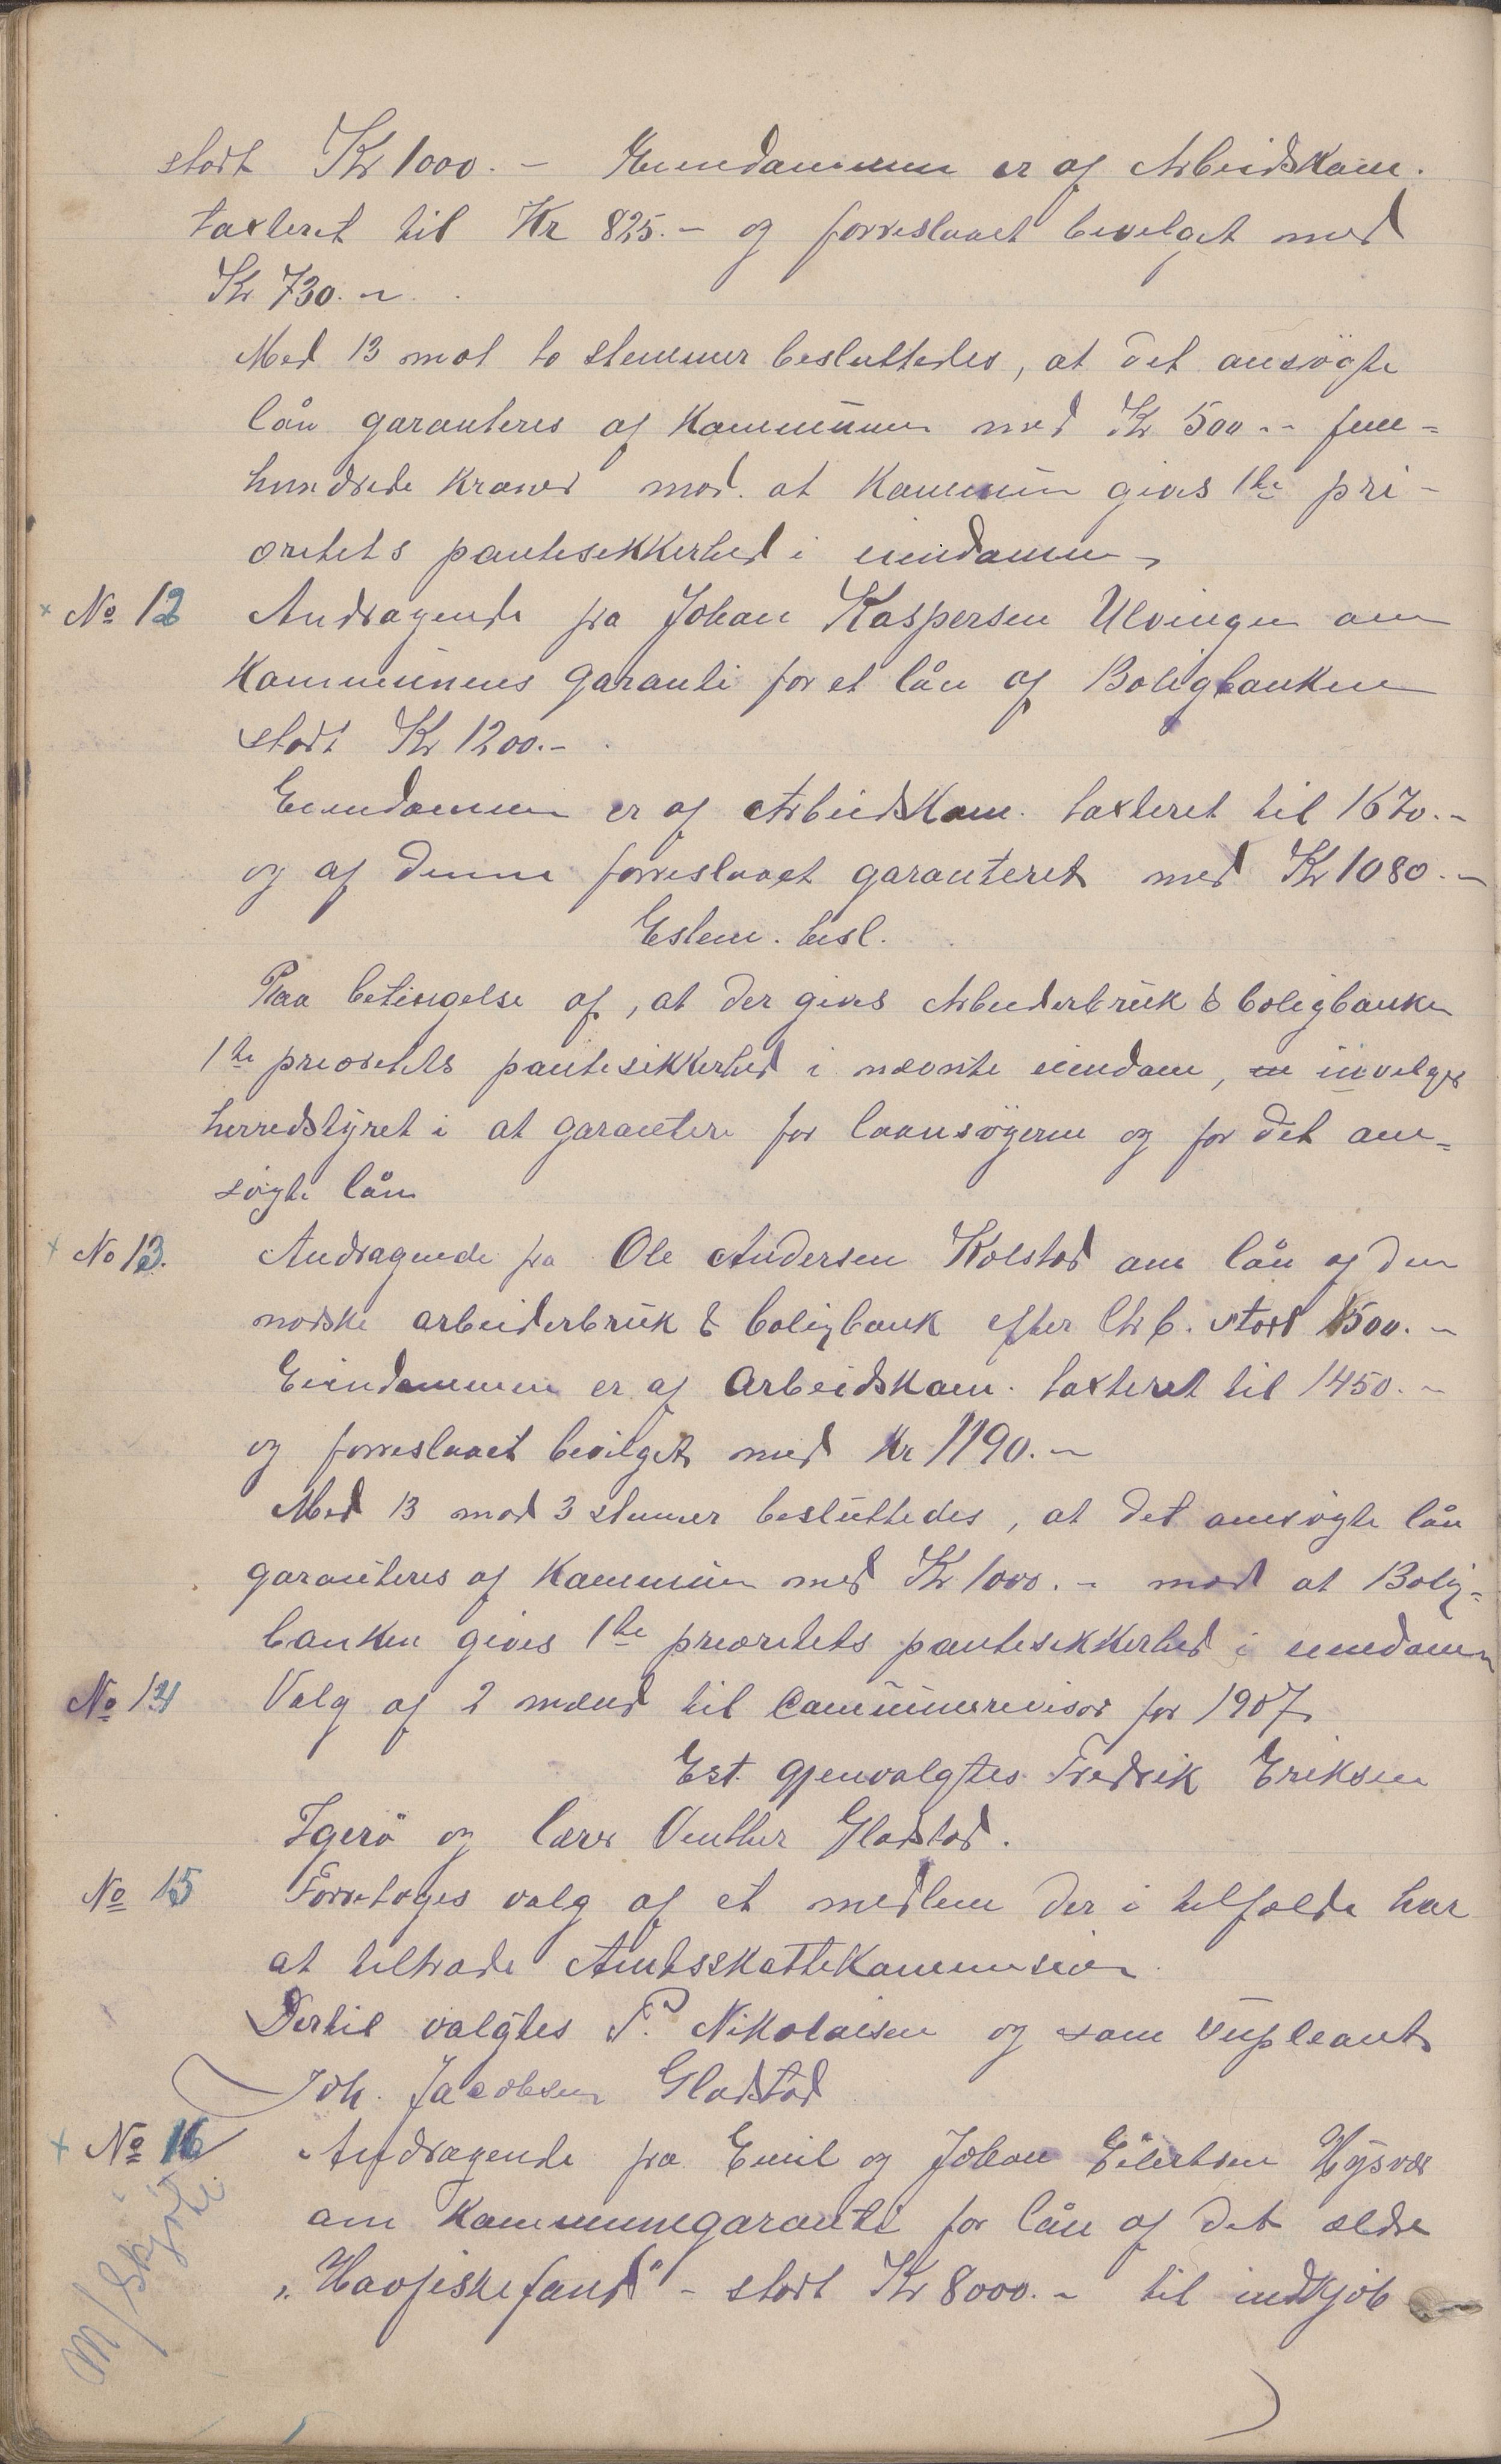 stort Kr 1000.- Eiendommen er af Arbeidskom.
taxteret til Kr 825.- og forreslaaet bevelget med
Kr 730.-
Med 13 mot to stemmer besluttedes, at det ansögte
lån garanteres af Kommunen med Kr 500.- fem=
hundrede kroner mod at Kommun gives 1te pri-
oritets pantesikkerhed i eiendommen
No 12 Andragende fra Johan Kaspersen Ulvingen om
Kommunens garanti for et lån af Boligbanken
stort Kr 1200.-
Eiendommen er af Arbeidskom. taxteret til 1670.-
og af denne forreslaaet garanteret med Kr 1080.-
Estem. besl.
Paa betingelse af, at der gives Arbeiderbruk & boligbanken
1te prioritets pantesikkerhed i nævnte eiendom, invelger
herredstyret i at garantere for laansögeren og for det an=
søgte lån
No 13. Andragende fra Ole Andersen Kolstad om lån af den
norske arbeiderbruk & boligbank efter Ltr b. stort 1500.-
Eiendommen er af Arbeidskom. taxteret til 1450.-
og forreslaaet bevilget med Kr 1190.-
Med 13 mod 3 stemmer besluttedes, at det ansøgte lån
garanteres af Kommunen med Kr 1000.- mod at Bolig=
banken gives 1te prioritets pantesikkerhed i eiendommen
No 14 Valg af 2 mænd til Communerevisor for 1907
Est. gjenvalgtes Fredrik Eriksen
Igerö og lærer Venther Gladstad.
No 15 Forretoges valg af et medlem der i tilfælde har
at tiltræde Amtsskattekommission
Dertil valgtes P. Nikolaisen og som supleant
Joh. Jacobsen Gladstad
No 16 Andragende fra Emil og Johan Eilertsen Hysvær
om Kommunegaranti for lån af det ældre
"Havfiskefond" - stort Kr 8000.- til indkjöb
M/Skjöte